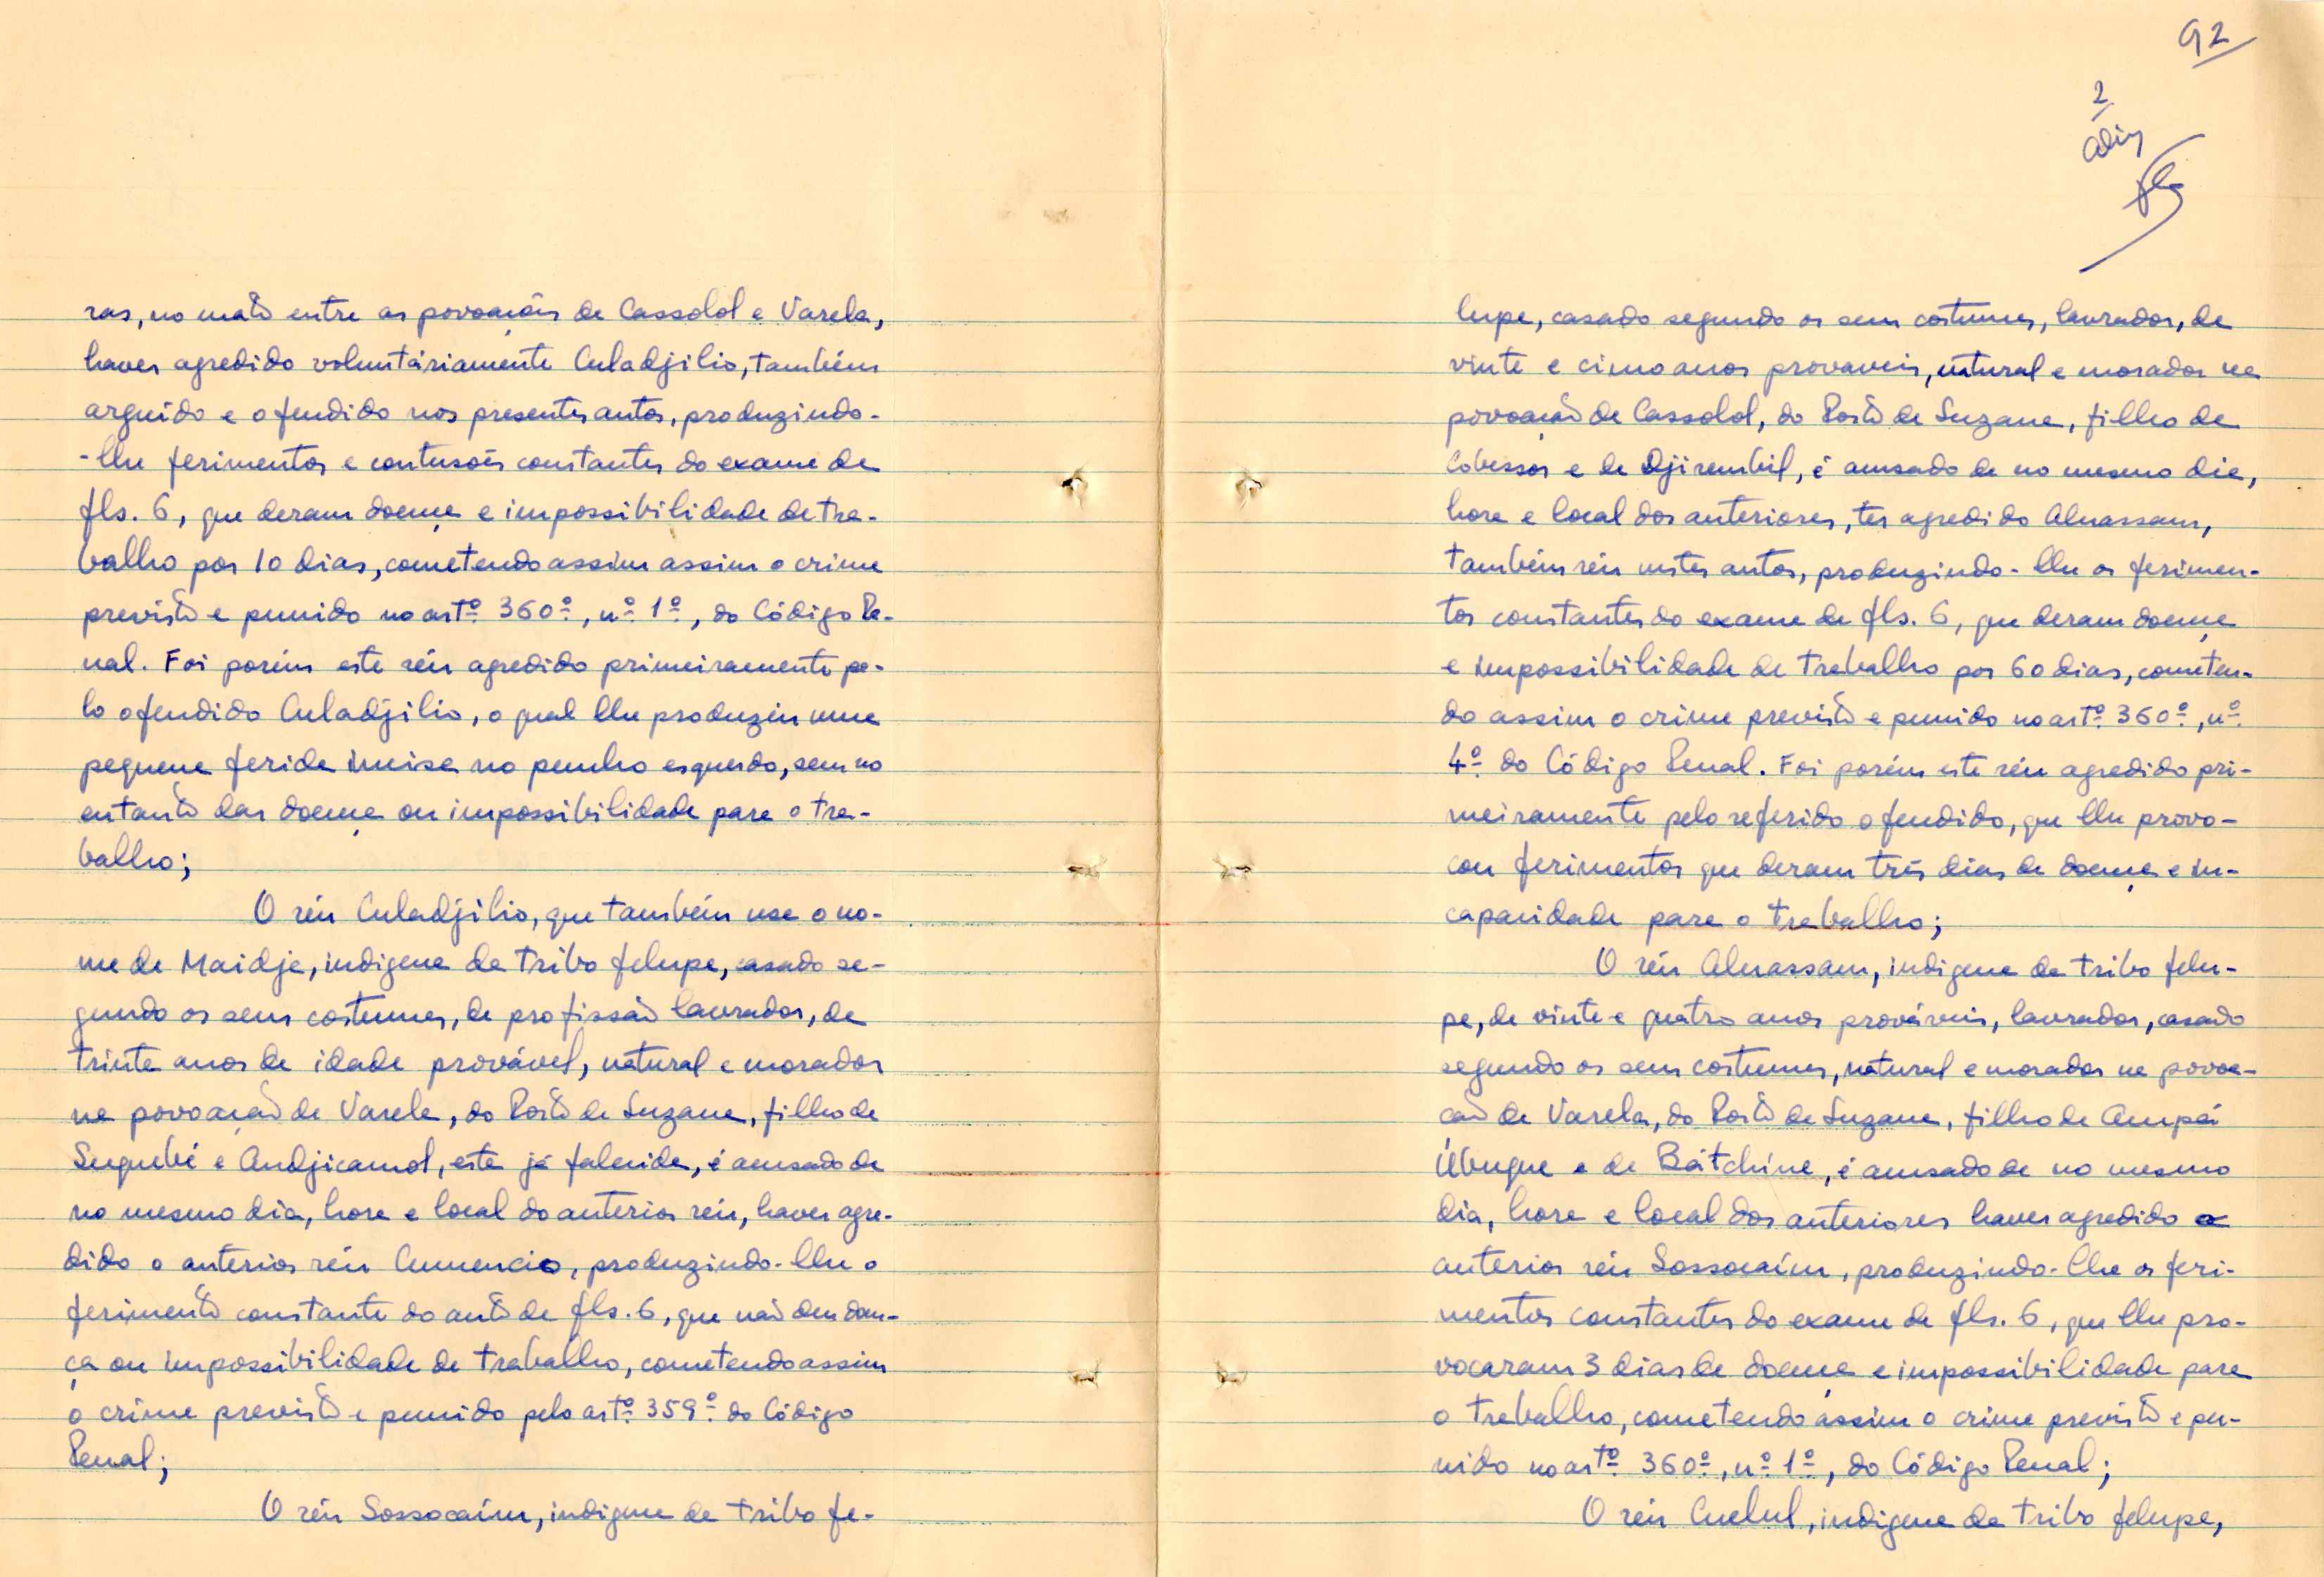 ras, no mato entre as povoações de Cassolol e Varela,
haver agredido voluntáriamente Culadjilio, também
arguido e ofendido nos presentes autos, produzindo-
-lhe ferimentos e contusões constantes do exame de
fls. 6, que deram doença e impossibilidade de tra-
balho por 10 dias, cometendo assim assim o crime
previsto e punido no artº 360º, nº 1º, do Código Pe-
nal. Foi porém este réu agredido primeiramente pe-
lo ofendido Culadjilio, o qual lhe produziu uma
pequena ferida incisa no punho esquerdo, sem no
entanto dar doença ou impossibilidade para o tra-
balho;
O réu Culadjilio, que também usa o no-
me de Maidje, indigena da tribo felupe, casado se-
gundo os seus costumes, de profissão lavrador, de
trinta anos de idade provável, natural e morador
na povoação de Varela, do Posto de Suzana, filho de
Sugubé e Andjicamol, esta já falecida, é acusado de
no mesmo dia, hora e local do anterior réu, haver agre-
dido o anterior réu Cumencio, produzindo-lhe o
ferimento constante do auto de fls. 6, que não deu doen-
ça ou impossibilidade de trabalho, cometendo assim
o crime previsto e punido pelo artº 359º do Código
Penal;
O réu Sossocaím, indigena da tribo fe-
92
2
lupe, casado segundo os seus costumes, lavrador, de
vinte e cinco anos provaveis, natural e morador na
povoação de Cassolol, do Posto de Suzana, filho de
Cobessor e de Djirembil, é acusado de no mesmo dia,
hora e local dos anteriores, ter agredido Aluassam,
também réu nestes autos, produzindo-lhe os ferimen-
tos constantes do exame de fls. 6, que deram doença
e impossibilidade de trabalho por 60 dias, cometen-
do assim o crime previsto e punido no artº 360º, nº
4º do Código Penal. Foi porém este réu agredido pri-
meiramente pelo referido ofendido, que lhe provo-
cou ferimentos que deram três dias de doença e in-
capacidade para o trabalho;
O réu Aluassam, indigena da tribo felu-
pe, de vinte e quatro anos prováveis, lavrador, casado
segundo os seus costumes, natural e morador na povoa-
ção de Varela, do Posto de Suzana, filho de Ampái
Úbugue e de Bátchine, é acusado de no mesmo
dia, hora e local dos anteriores haver agredido o
anterior réu Sossocaím, produzindo-lhe os feri-
mentos constantes do exame de fls. 6, que lhe pro-
vocaram 3 dias de doença e impossibilidade para
o trabalho, cometendo assim o crime previsto e pu-
nido no artº 360º, nº 1º, do Código Penal;
O réu Cuelul, indigena da tribo felupe,